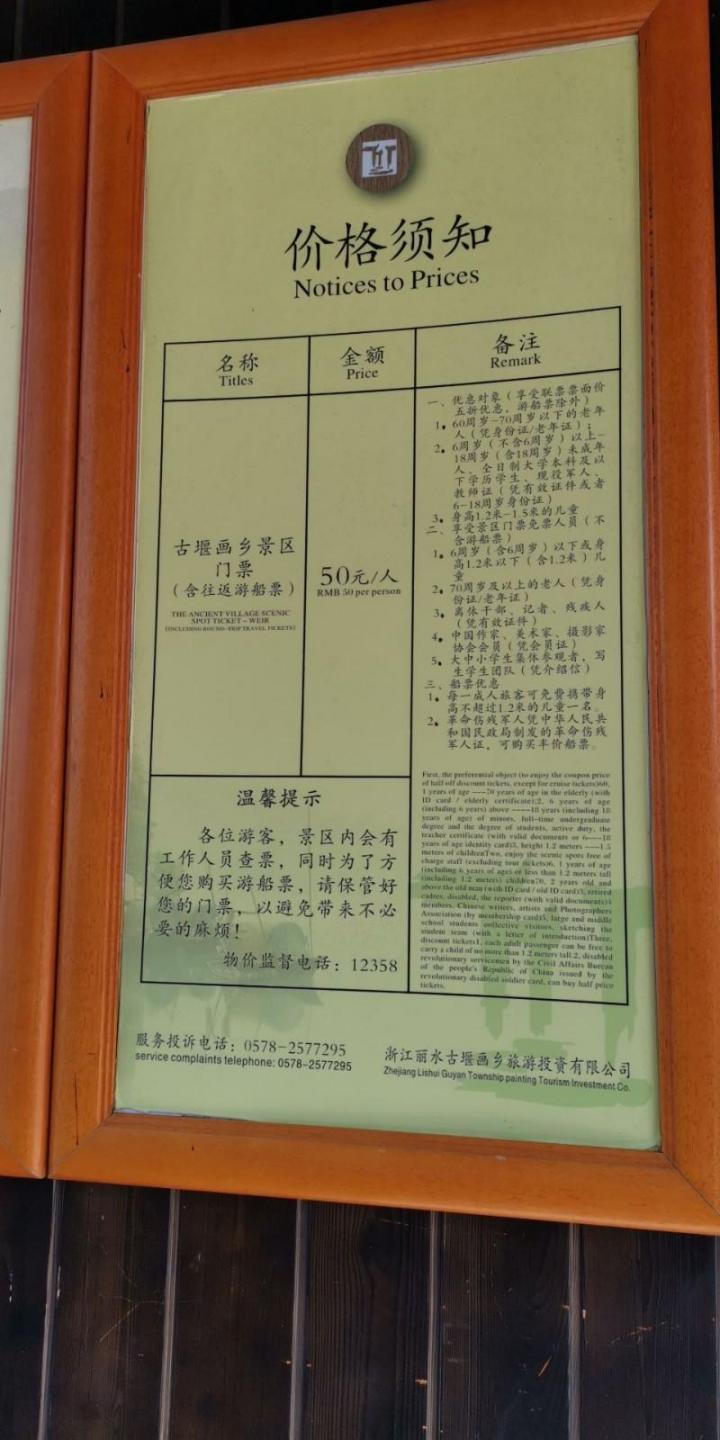 价格须知
Notices to Prices
名称
Titles
金额
Price
备注
Remark
古堰画乡景区
门票
（含往返游船票）
THE ANCIENT VILLAGE SCENIC
SPOT TICKET - WEIR
(INCLUDING ROUND-TRIP TRAVEL TICKETS)
50元/人
RMB 50 per person
一、优惠对象（享受联票票面价
五折优惠，游船票除外）
1、60周岁-70周岁以下的老年
人（凭身份证/老年证）；
2、6周岁（不含6周岁）以上-
18周岁（含18周岁）未成年
人、全日制大学本科及以
下学历学生、现役军人、
教师证（凭有效证件或者
6-18周岁身份证）
3、身高1.2米-1.5米的儿童
二、享受景区门票免票人员（不
含游船票）
1、6周岁（含6周岁）以下或身
高1.2米以下（含1.2米）儿
童
2、70周岁及以上的老人（凭身
份证/老年证）
3、离休干部、记者、残疾人
（凭有效证件）
4、中国作家、美术家、摄影家
协会会员（凭会员证）
5、大中小学生集体参观者，写
生学生团队（凭介绍信）
三、船票优惠
1、每一成人旅客可免费携带身
高不超过1.2米的儿童一名。
2、革命伤残军人凭中华人民共
和国民政局制发的革命伤残
军人证，可购买半价船票。
First, the preferential object (to enjoy the coupon price
of half off discount tickets, except for cruise tickets)60,
1 years of age ---70 years of age in the elderly (with
ID card / elderly certificate);2, 6 years of age
(including 6 years) above ----18 years (including 18
years of age) of minors, full-time undergraduate
degree and the degree of students, active duty, the
teacher certificate (with valid documents or 6---18
years of age identity card)3, height 1.2 meters ----1.5
meters of childrenTwo, enjoy the scenic spots free of
charge staff (excluding tour tickets)6, 1 years of age
(including 6 years of age) or less than 1.2 meters tall
(including 1.2 meters) children70, 2 years old and
above the old man (with ID card / old ID card)3, retired
cadres, disabled, the reporter (with valid documents)4
members, Chinese writers, artists and Photographers
Association (by membership card)5, large and middle
school students collective visitors, sketching the
student team (with a letter of introduction)Three,
discount tickets1, each adult passenger can be free to
carry a child of no more than 1.2 meters tall.2, disabled
revolutionary servicemen by the Civil Affairs Bureau
of the people's Republic of China issued by the
revolutionary disabled soldier card, can buy half price
tickets.
温馨提示
各位游客，景区内会有
工作人员查票，同时为了方
便您购买游船票，请保管好
您的门票，以避免带来不必
要的麻烦！
物价监督电话：12358
服务投诉电话：0578-2577295
service complaints telephone: 0578-2577295
浙江丽水古堰画乡旅游投资有限公司
Zhejiang Lishui Guyan Township painting Tourism Investment Co.